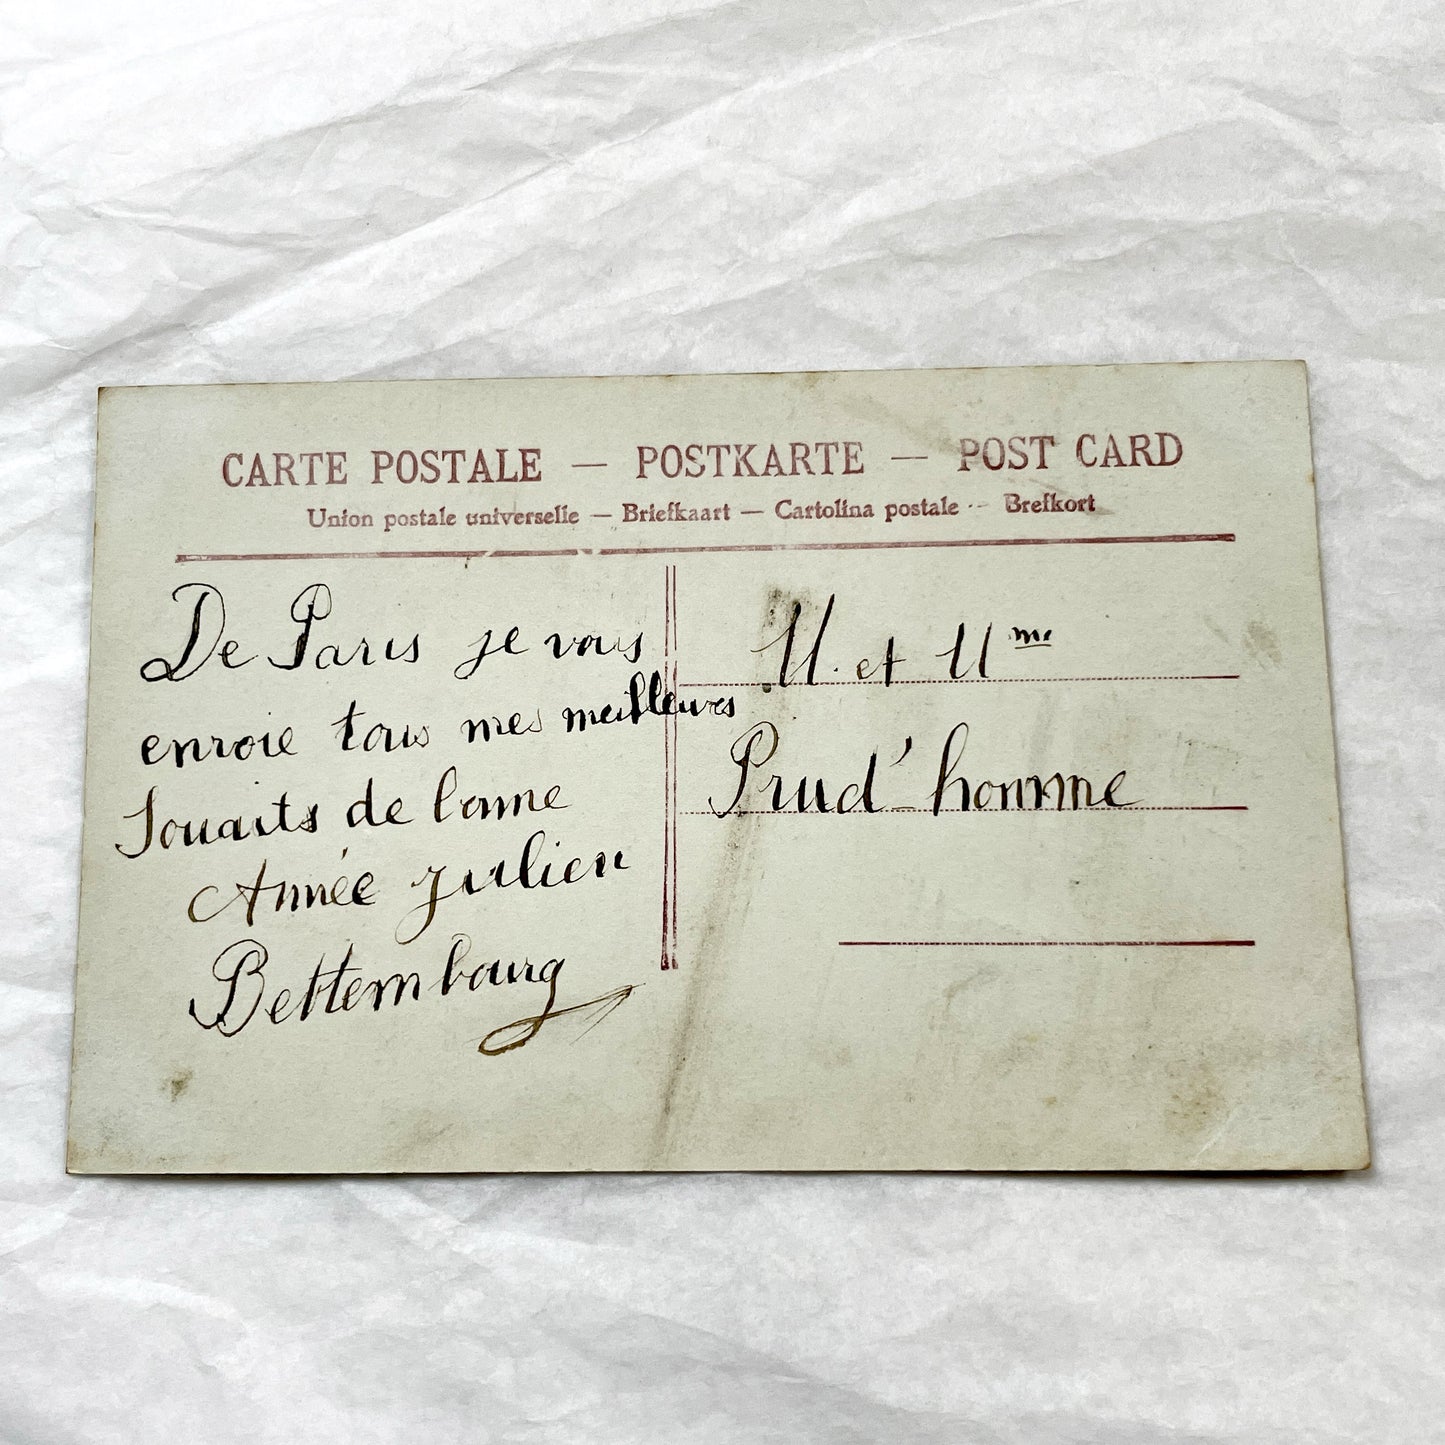 CARTE POSTALE — POSTKARTE — POST CARD
Union postale universelle — Briefkaart — Cartolina postale — Brefkort
De Paris je vous
envoie tous mes meilleurs
Souaits de bonne
Année Julien
Bettembourg
M. et Mme
Prud'homme